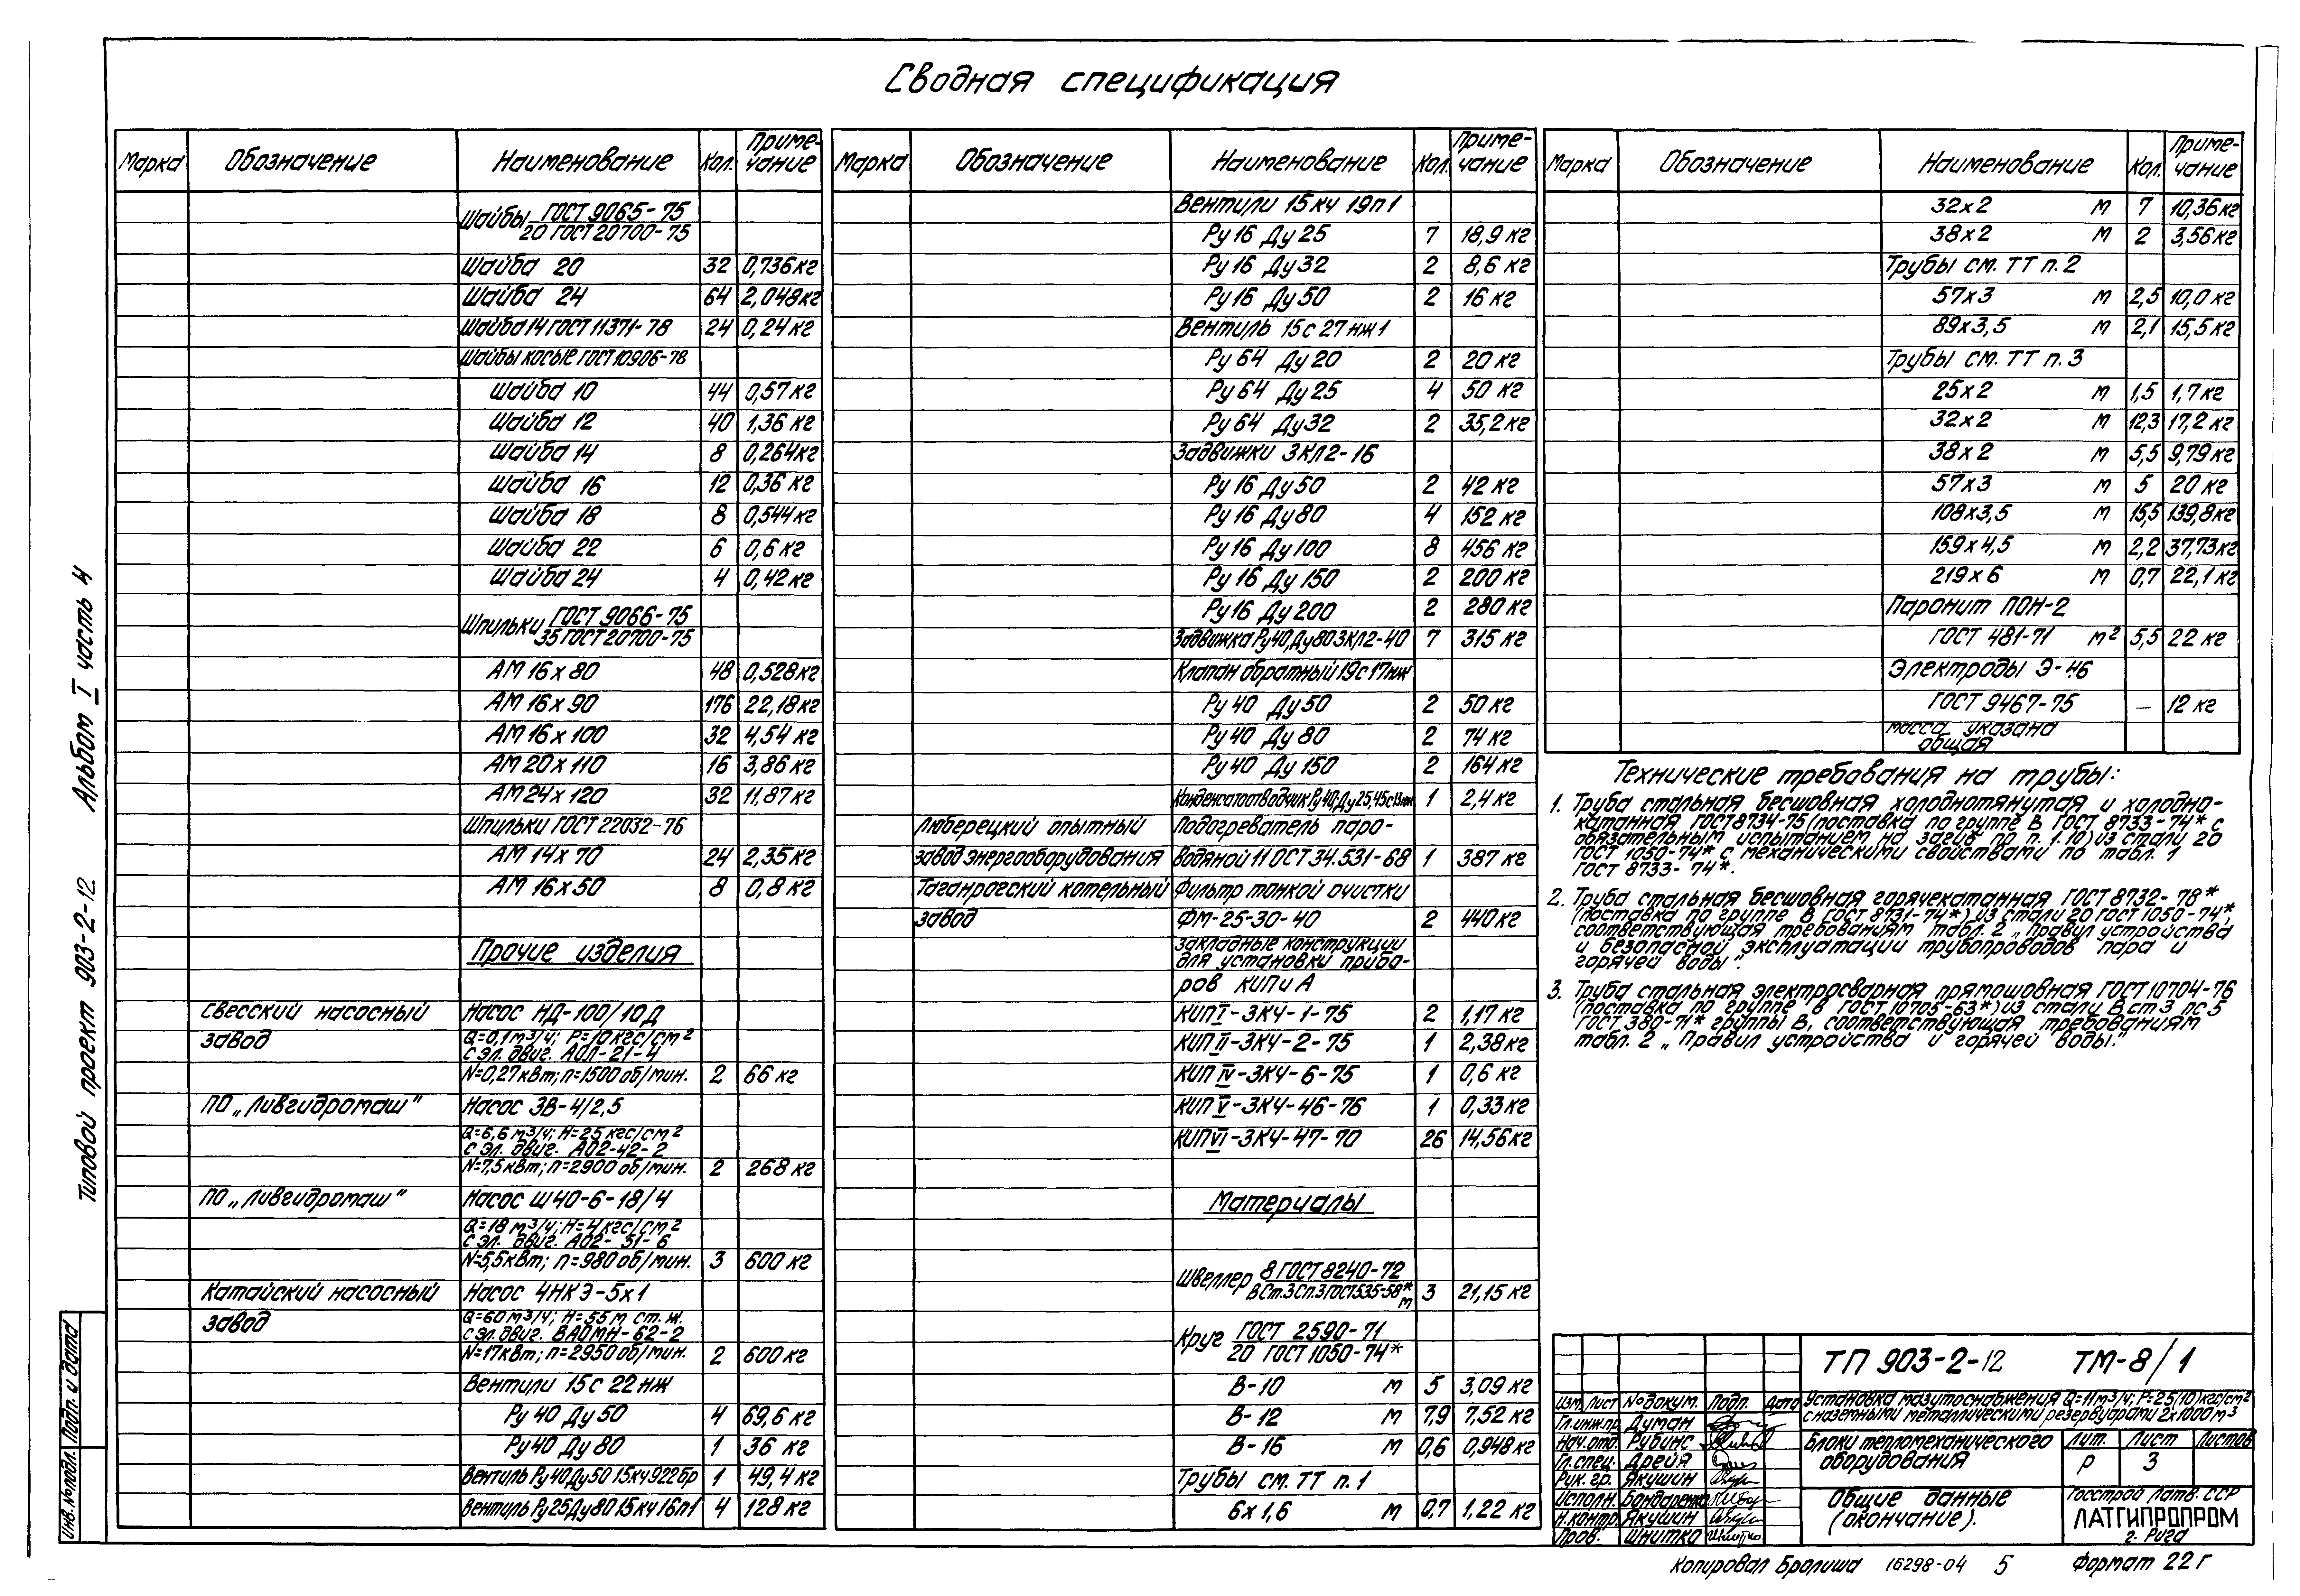 Сводная спецификация
Марка Обозначение Наименование Кол. Приме-чание
Шайбы ГОСТ 9065-75
20 ГОСТ 20700-75
Шайба 20 32 0,736кг
Шайба 24 64 2,048кг
Шайба 14 ГОСТ 11371-78 24 0,24кг
Шайбы косые ГОСТ 10906-78
Шайба 10 44 0,57кг
Шайба 12 40 1,36кг
Шайба 14 8 0,264кг
Шайба 16 12 0,36 кг
Шайба 18 8 0,544кг
Шайба 22 6 0,6 кг
Шайба 24 4 0,42кг
Шпильки ГОСТ 9066-75
35 ГОСТ 20700-75
АМ 16 х 80 48 0,528кг
АМ 16 х 90 176 22,18кг
АМ 16 х 100 32 4,54 кг
АМ 20 х 110 16 3,86 кг
АМ 24 х 120 32 11,87 кг
Шпильки ГОСТ 22032-76
АМ 14 х 70 24 2,35кг
АМ 16 х 50 8 0,8 кг
Прочие изделия
Свесский насосный Насос НД-100/10Д
завод Q=0,1 м³/ч; Р=10 кгс/см²
с эл. двиг. АОЛ-21-4
N=0,27квт; n=1500 об/мин. 2 66 кг
ПО „Ливгидромаш" Насос 3В-4/2,5
Q=6,6 м³/ч; Н=25 кгс/см²
с эл. двиг. А02-42-2
N=7,5квт; n=2900 об/мин. 2 268 кг
ПО „Ливгидромаш" Насос Ш40-6-18/4
Q=18 м³/ч; Н=4кгс/см²
с эл. двиг. А02-51-6
N=5,5квт; n=980 об/мин. 3 600 кг
Катайский насосный Насос 4НКЭ-5х1
завод Q=60 м³/ч; Н=55 м ст. ж.
с эл. двиг. ВАОМН-62-2
N=17квт; n=2950 об/мин. 2 600 кг
Вентили 15с 22 нж
Ру 40 Ду 50 4 69,6 кг
Ру 40 Ду 80 1 36 кг
Вентиль Ру40Ду50 15кч922бр 1 49,4 кг
Вентиль Ру25Ду80 15кч16п1 4 128 кг
Марка Обозначение Наименование Кол. Приме-чание
Вентили 15кч 19п1
Ру 16 Ду 25 7 18,9 кг
Ру 16 Ду 32 2 8,6 кг
Ру 16 Ду 50 2 16 кг
Вентиль 15с 27 нж 1
Ру 64 Ду 20 2 20 кг
Ру 64 Ду 25 4 50 кг
Ру 64 Ду 32 2 35,2 кг
Задвижки ЗКЛ2-16
Ру 16 Ду 50 2 42 кг
Ру 16 Ду 80 4 152 кг
Ру 16 Ду 100 8 456 кг
Ру 16 Ду 150 2 200 кг
Ру 16 Ду 200 2 280 кг
Задвижка Ру40,Ду80 ЗКЛ2-40 7 315 кг
Клапан обратный 19с17нж
Ру 40 Ду 50 2 50 кг
Ру 40 Ду 80 2 74 кг
Ру 40 Ду 150 2 164 кг
Конденсатоотводчик Ру40; Ду25,45с13нж 1 2,4 кг
Люберецкий опытный Подогреватель паро-
завод энергооборудования водяной 11 ОСТ 34.531-68 1 387 кг
Таганрогский котельный Фильтр тонкой очистки
завод ФМ-25-30-40 2 440кг
закладные конструкции
для установки прибо-
ров КИП и А
КИП I-ЗКЧ-1-75 2 1,17 кг
КИП II-ЗКЧ-2-75 1 2,38кг
КИП IV-ЗКЧ-6-75 1 0,6 кг
КИП V-ЗКЧ-46-76 1 0,33 кг
КИП VI-ЗКЧ-47-70 26 14,56кг
Материалы
Швеллер 8 ГОСТ 8240-72
ВСт.3Сп.3 ГОСТ535-58* м 3 21,15 кг
Круг ГОСТ 2590-71
20 ГОСТ 1050-74*
В-10 м 5 3,09 кг
В-12 м 7,9 7,52 кг
В-16 м 0,6 0,948кг
Трубы см. ТТ п. 1
6х1,6 м 0,7 1,22 кг
Марка Обозначение Наименование Кол. Приме-чание
32х2 м 7 10,36кг
38х2 м 2 3,56кг
Трубы см. ТТ п. 2
57х3 м 2,5 10,0 кг
89х3,5 м 2,1 15,5кг
Трубы см. ТТ п. 3
25х2 м 1,5 1,7 кг
32х2 м 12,3 17,2 кг
38х2 м 5,5 9,79 кг
57х3 м 5 20 кг
108х3,5 м 15,5 139,8кг
159х4,5 м 2,2 37,73кг
219х6 м 0,7 22,1 кг
Паронит ПОН-2
ГОСТ 481-71 м² 5,5 22 кг
Электроды Э-46
ГОСТ 9467-75 — 12 кг
масса указана
общая
Технические требования на трубы:
1. Труба стальная бесшовная холоднотянутая и холодно-
катанная ГОСТ 8734-75 (поставка по группе В ГОСТ 8733-74* с
обязательным испытанием на загиб по п. 1.10) из стали 20
ГОСТ 1050-74* с механическими свойствами по табл. 1
ГОСТ 8733-74*.
2. Труба стальная бесшовная горячекатанная ГОСТ 8732-78*
(поставка по группе В ГОСТ 8731-74*) из стали 20 ГОСТ 1050-74*,
соответствующая требованиям табл. 2 „Правил устройства
и безопасной эксплуатации трубопроводов пара и
горячей воды".
3. Труба стальная электросварная прямошовная ГОСТ 10704-76
(поставка по группе В ГОСТ 10705-63*) из стали В ст 3 пс 5
ГОСТ 380-71* группы В, соответствующая требованиям
табл. 2 „Правил устройства и горячей воды."
Типовой проект 903-2-12 Альбом I часть 4
Инв.№подл. Подп. и дата
ТП 903-2-12 ТМ-8/1
Изм. Лист №докум. Подп. Дата
Гл.инж.пр. Думан
Нач.отд. Рубинс
Гл.спец. Дрейя
Рук. гр. Якушин
Исполн. Бондаренко
Н.контр. Якушин
Пров. Шнитко
Установка мазутоснабжения Q=11м³/ч; Р=25(10)кгс/см²
с наземными металлическими резервуарами 2х1000 м³
Блоки тепломеханического
оборудования
Лит. Лист Листов
Р 3
Общие данные
(окончание).
Госстрой Латв. ССР
ЛАТГИПРОПРОМ
г. Рига
Копировал Бролиша 16298-04 5 Формат 22 Г